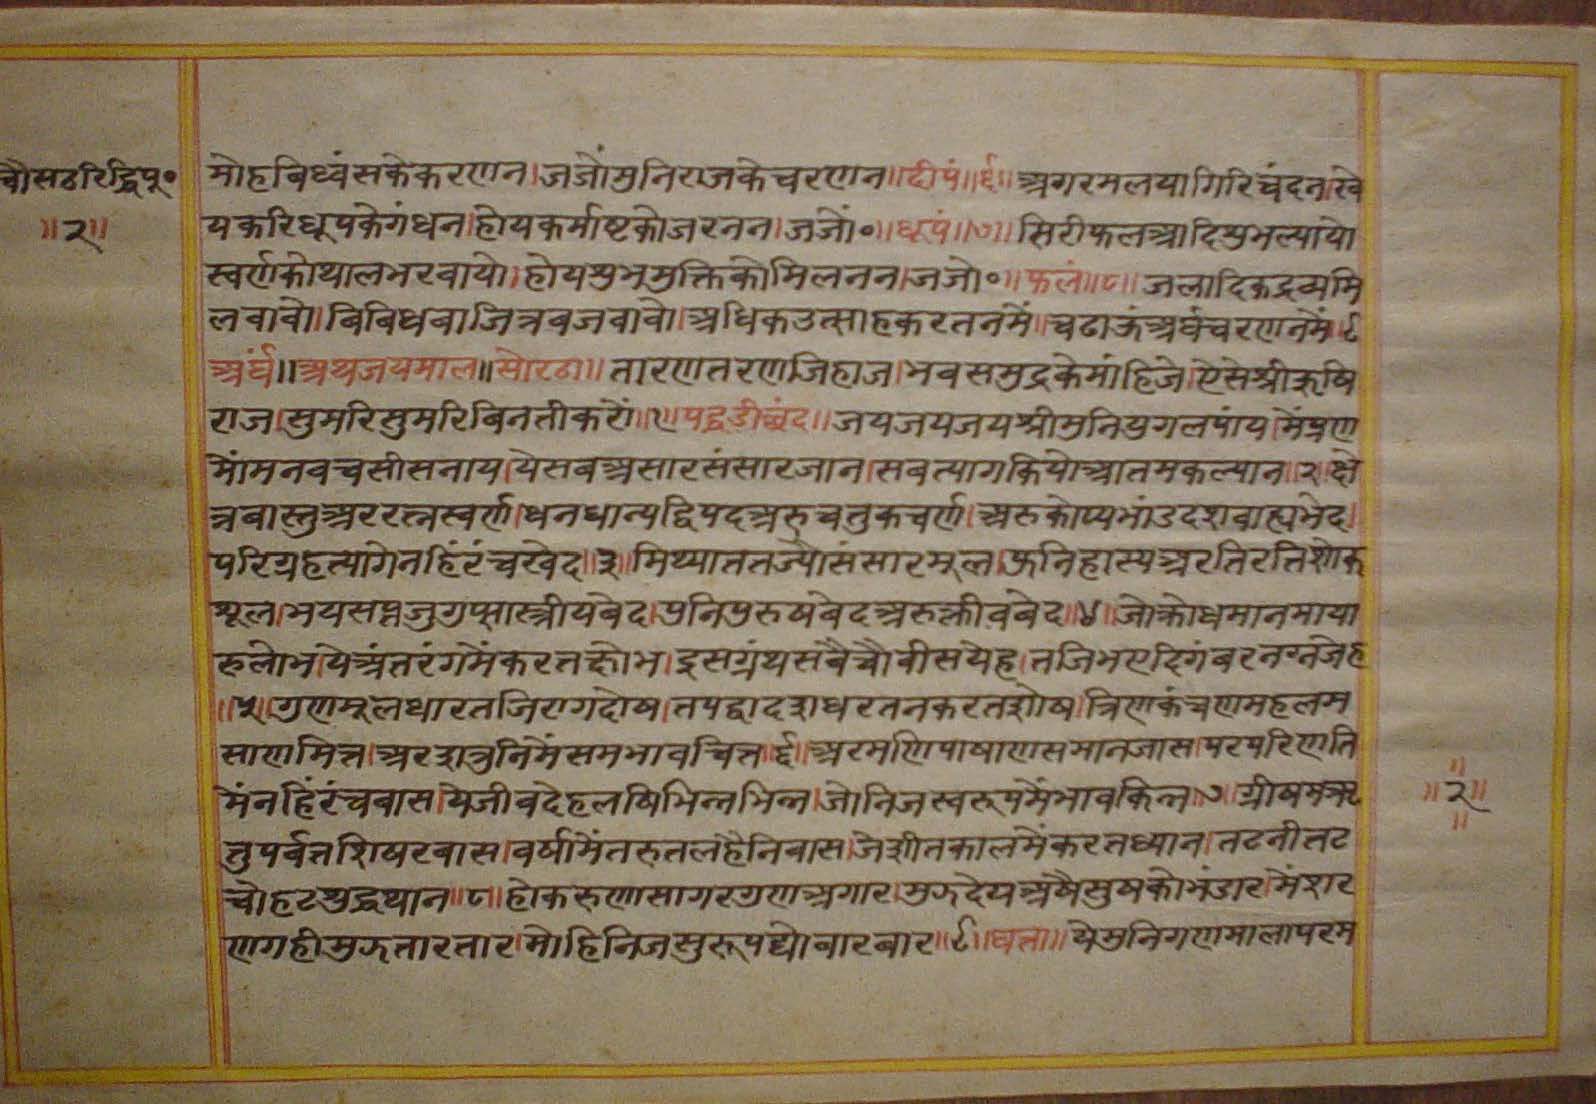 चौसठरिद्धिपू॰
॥२॥
मोहबिध्वंसकेकरणन।जजौंमुनिराजकेचरणन॥दीपं॥६॥अगरमलयागिरिचंदन।खे
यकरिधूपकेगंधन।होयकर्माष्टकोजरनन।जजों॰॥धूपं॥७॥सिरीफलआदिशुभल्यायो
स्वर्णकोथालभरवायो।होयशुभमुक्तिकोमिलनन।जजो॰॥फलं॥८॥जलादिकद्रव्यमि
लवावो।बिबिधवाजित्रबजवावो।अधिकउत्साहकरतनमें।चढाऊंअर्घचरणनमें॥९
अर्घं॥अथजयमाल॥सोरठा॥तारणतरणजिहाज।भवसमुद्रकेमांहिजे।ऐसेश्रीऋषि
राज।सुमरिसुमरिबिनतीकरों॥१॥पद्धडीछंद॥जयजयजयश्रीमुनियुगलपांय।मेंप्रण
मोंमनवचसीसनाय।येसबअसारसंसारजान।सबत्यागकियोआतमकल्यान॥२॥क्षे
त्रबास्तुअररत्नस्वर्ण।धनधान्यद्विपदअरुचतुकचर्ण।अरुकोप्यभांडदशबाह्यभेद।
परिग्रहत्यागेनहिंरंचखेद॥३॥मिथ्याततज्योसंसारमूल।फुनिहास्यअरतिरतिशोक
शूल।भयसप्तजुगुप्सास्त्रीयबेद।पुनिपुरुषबेदअरुक्लीवबेद॥४॥जोक्रोधमानमाया
रुलोभ।येअंतरंगमेंकरतक्षोभ।इसग्रंथसबैचौबीसयेह।तजिभएदिगंबरनग्नजेह
॥५॥गुणमूलधारतजिरागदोष।तपद्वादशधरतनकरतशोष।त्रिणकंचणमहलम
साणमित्त।अरशत्रुनिमेंसमभावचित्त॥६॥अरमणिपाषाणसमानजास।परपरिणति
मेंनहिंरंचबास।येजीवदेहलषिभिन्नभिन्न।जोनिजस्वरूपमेंभावकिन्न॥७॥ग्रीषमऋ
तुपर्वतशिषरबास।वर्षामेंतरुतलहैनिबास।जेशीतकालमेंकरतध्यान।तटनीतट
चोहटशुद्धथान॥८॥होकरुणासागरगुणअगार।मुझदेयअषैसुषकोभंडार।मेंशर
णगहीमुझतारतार।मोहिनिजसुरूपद्योबारबार॥९॥घत्ता॥येमुनिगणमालापरम
॥२॥